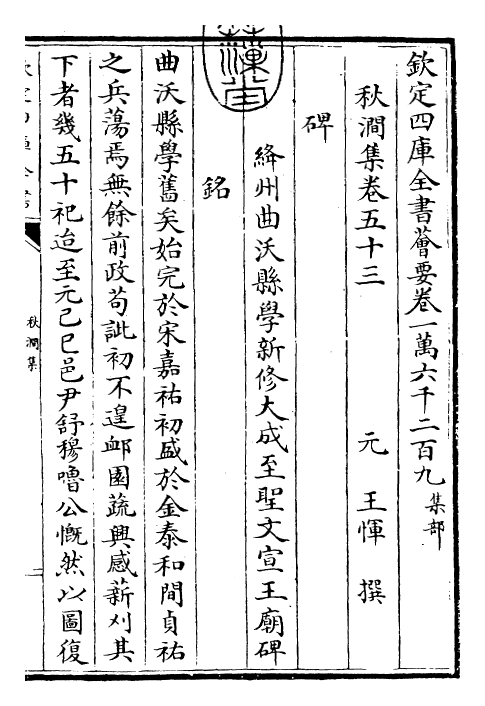 欽定四庫全書薈要卷一萬六千二百九 集部
秋澗集卷五十三 元 王惲 撰
碑
絳州曲沃縣學新修大成至聖文宣王廟碑
銘
曲沃縣學舊矣始完於宋嘉祐初盛於金泰和間貞祐
之兵蕩焉無餘前政苟訿初不遑䘏園蔬興感薪刈其
下者幾五十祀迨至元己巳邑尹舒穆嚕公慨然以圖復
秋澗集